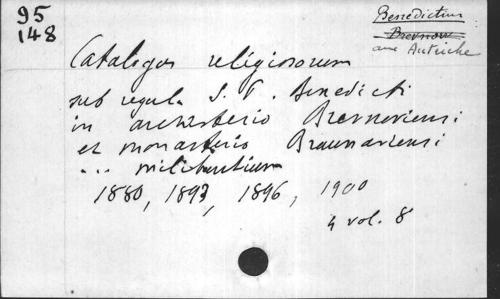 95
148
Benedictins
Brevnow
aux Autriche
Catalogus religiosorum
sub regula S. P. Benedicti
in archisterio Brevnoviensi
et monasterio Braunaviensi
... militantium
1880, 1893, 1896, 1900
4 vol. 8